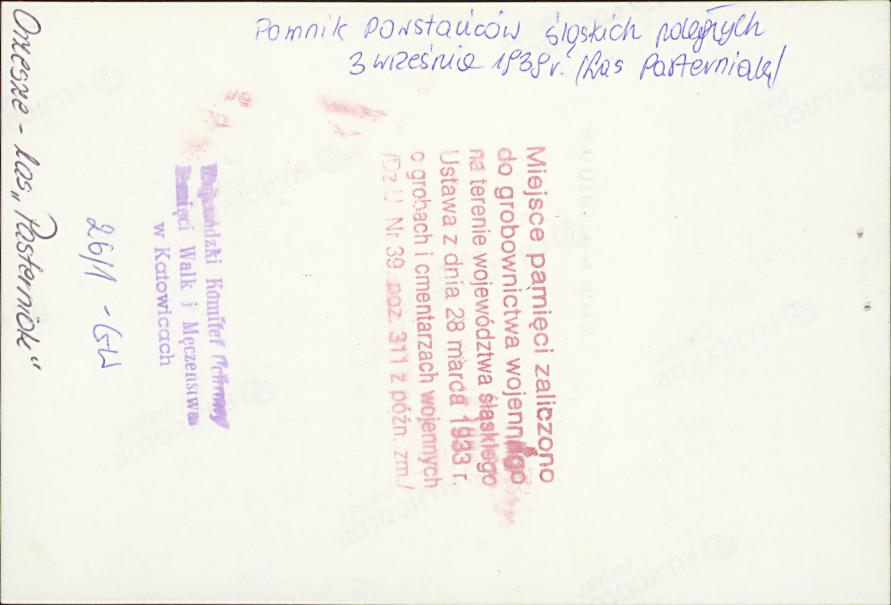 Pomnik Powstańców śląskich poległych
3 września 1939r. (Las Pasterniak)
Orzesze - las „Pasterniok"
26/1 - GW
Wojewódzki Komitet Ochrony
Pamięci Walk i Męczeństwa
w Katowicach
Miejsce pamięci zaliczono
do grobownictwa wojennego
na terenie województwa śląskiego
Ustawa z dnia 28 marca 1933 r.
o grobach i cmentarzach wojennych
/Dz.U. Nr 39 poz. 311 z późn. zm./
FUJICOLOR
paper